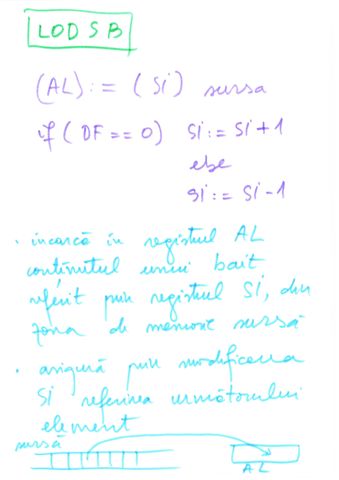 LODSB
(AL) := (Si) sursa
if (DF == 0) Si := Si + 1
else
Si := Si - 1
• încarcă în registrul AL
conținutul unui bait
referit prin registrul SI, din
zona de memorie sursă
• asigură prin modificarea
SI referirea următorului
element
sursă
AL